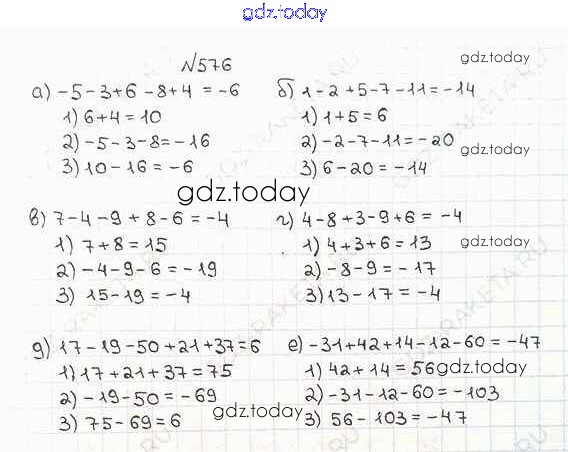 gdz.today
№576
gdz.today
а) -5-3+6-8+4=-6
1) 6+4=10
2) -5-3-8=-16
3) 10-16=-6
б) 1-2+5-7-11=-14
1) 1+5=6
2) -2-7-11=-20
gdz.today
3) 6-20=-14
gdz.today
в) 7-4-9+8-6=-4
1) 7+8=15
2) -4-9-6=-19
3) 15-19=-4
г) 4-8+3-9+6=-4
1) 4+3+6=13
gdz.today
2) -8-9=-17
3) 13-17=-4
д) 17-19-50+21+37=6
1) 17+21+37=75
2) -19-50=-69
3) 75-69=6
gdz.today
е) -31+42+14-12-60=-47
1) 42+14=56
gdz.today
2) -31-12-60=-103
3) 56-103=-47